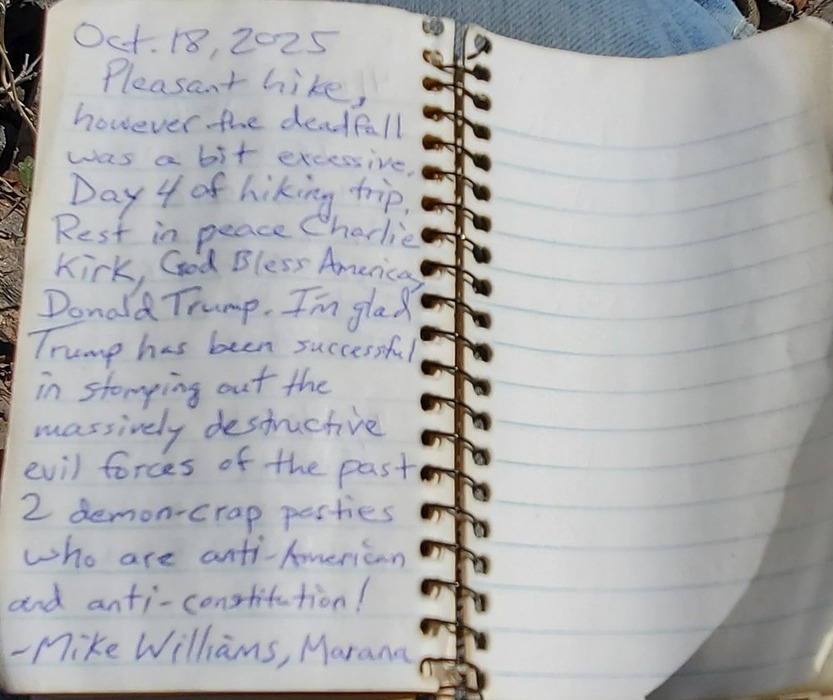 Oct. 18, 2025
Pleasant hike,
however the deadfall
was a bit excessive.
Day 4 of hiking trip.
Rest in peace Charlie
Kirk, God Bless America,
Donald Trump. I'm glad
Trump has been successful
in stomping out the
massively destructive
evil forces of the past
2 demon-crap posties
who are anti-American
and anti-constitution!
-Mike Williams, Marana